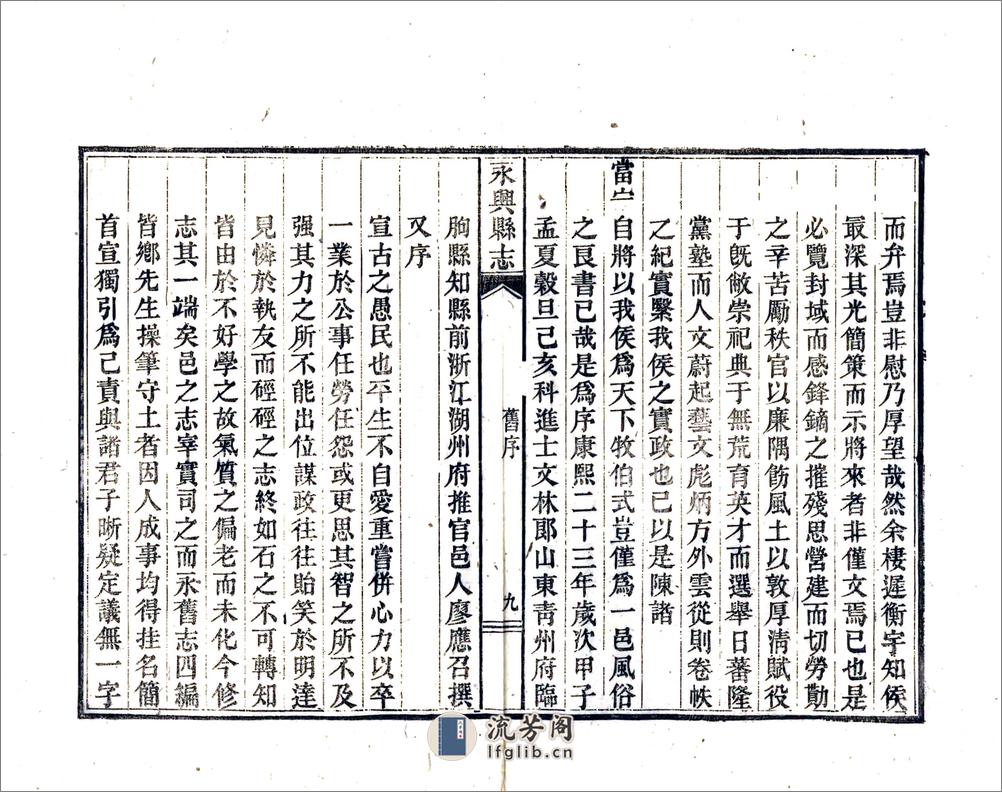 而弁焉豈非慰乃厚望哉然余棲遲衡宇知侯
最深其光簡策而示將來者非僅文焉已也是
必覽封域而感鋒鏑之摧殘思營建而切勞勩
之辛苦勵秩官以廉隅飭風土以敦厚清賦役
于旣敝崇祀典于無荒育英才而選舉日蕃隆
黨塾而人文蔚起藝文彪炳方外雲從則卷帙
之紀實繄我侯之實政也已以是陳諸
當宁自將以我侯爲天下牧伯式豈僅爲一邑風俗
之良書已哉是爲序康熙二十三年歲次甲子
孟夏穀旦己亥科進士文林郞山東靑州府臨
永興縣志
舊序
九
朐縣知縣前浙江湖州府推官邑人廖應召撰
又序
宣古之愚民也平生不自愛重嘗倂心力以卒
一業於公事任勞任怨或更思其智之所不及
强其力之所不能出位謀政往往貽笑於明達
見憐於執友而硜硜之志終如石之不可轉知
皆由於不好學之故氣質之偏老而未化今修
志其一端矣邑之志宰實司之而永舊志四編
皆鄉先生操筆守土者因人成事均得挂名簡
首宣獨引爲己責與諸君子晰疑定議無一字
流芳阁
lfglib.cn